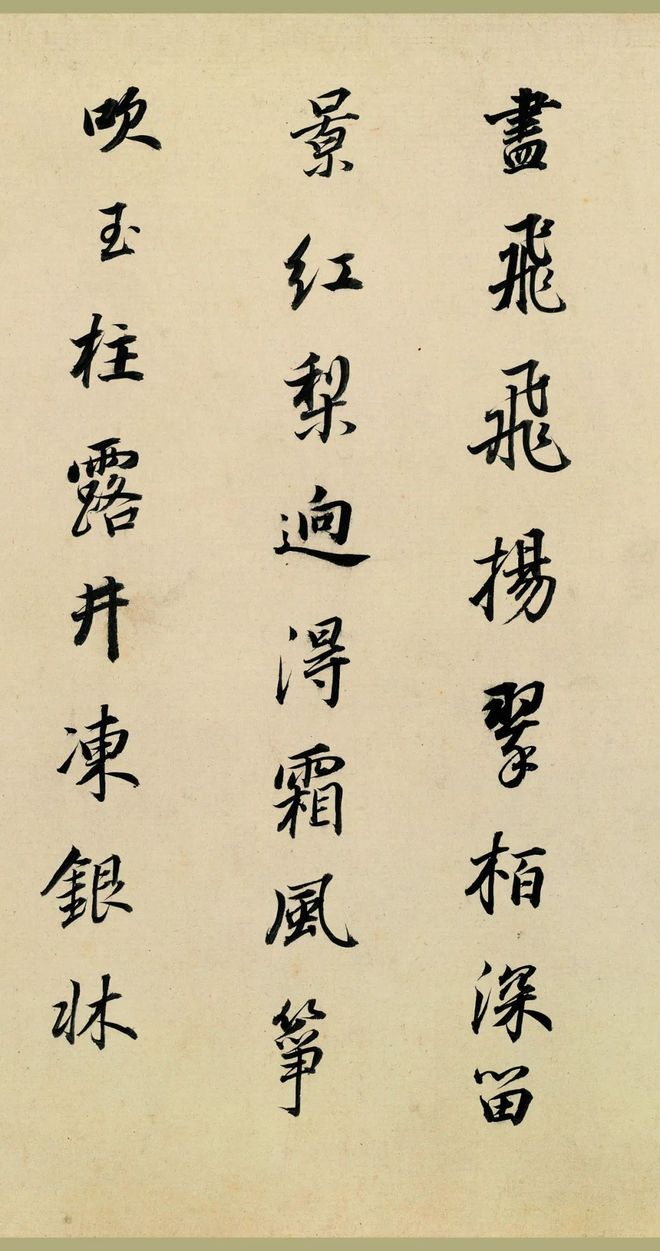 盡飛飛揚翠栢深留
景紅梨迥得霜風箏
吹玉柱露井凍銀牀